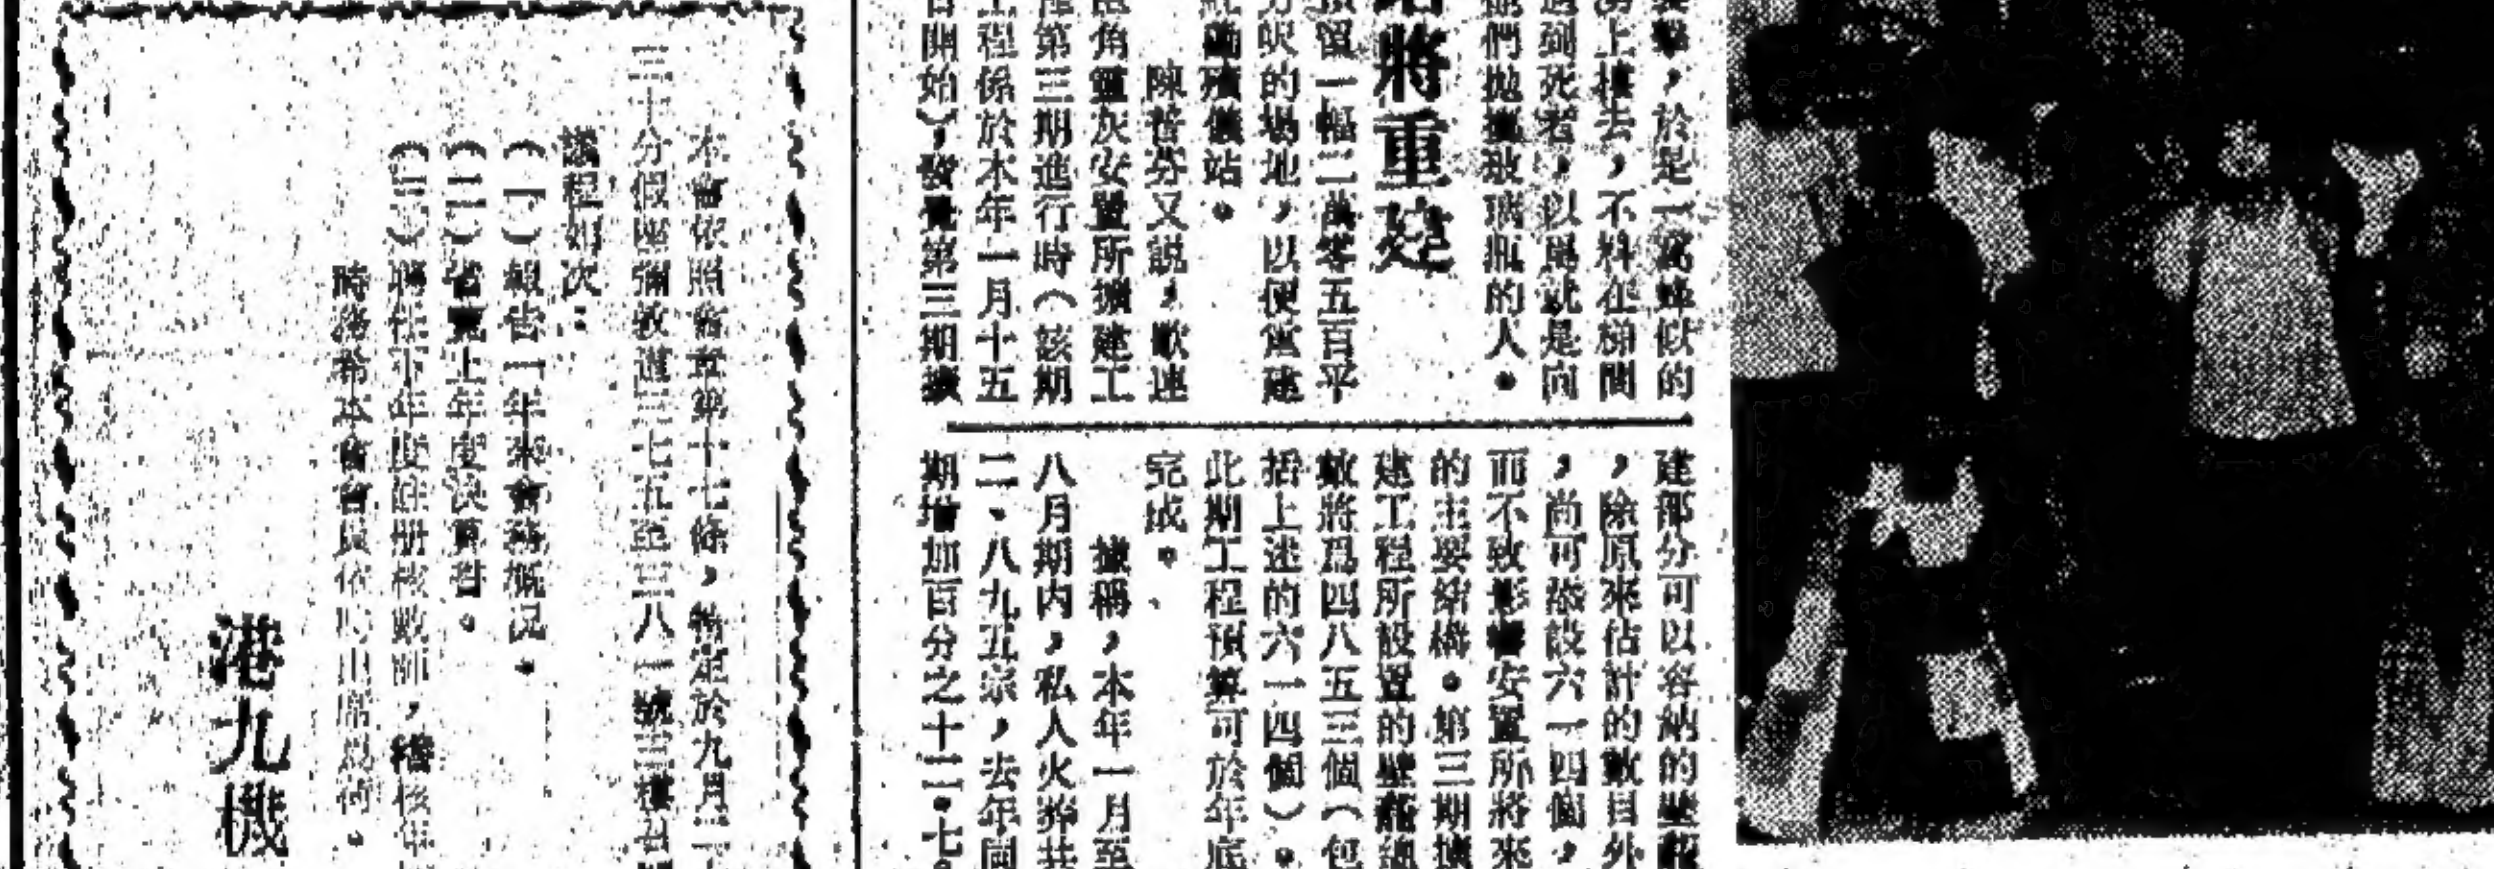 擊，於是一窩蜂似的
上樓去，不料在梯間
遇到死者，以爲就是向
他們拋擲玻璃瓶的人。
將重建
預留一幅二萬零五百平
方呎的場地，以便當建
殯儀站。
陳普芬又説，歌連
角靈灰安置所擴建工
程第三期進行時（該期
工程係於本年一月十五
日開始），發覺第三期擴
建部分可以容納的壁龕
，除原來估計的數目外
，尚可添設六一四個，
而不致影響安置所將來
的主要結構。第三期擴
建工程所設置的壁龕總
數將爲四八五三個（包
括上述的六一四個）。
此期工程預算可於年底
完成。
據稱，本年一月至
八月期內，私人火葬共
二、八九五宗，去年同
期增加百分之十二·七。
本會依照會章第十七條，特定於九月二十
三十分假座彌敦道三七五至三八一號三樓召開
議程如次：
（一）報告一年來會務概況。
（二）省覽上年度決算書。
（三）聘任下年度註册核數師，稽核年
時務希本會會員依時出席爲荷。
港九機